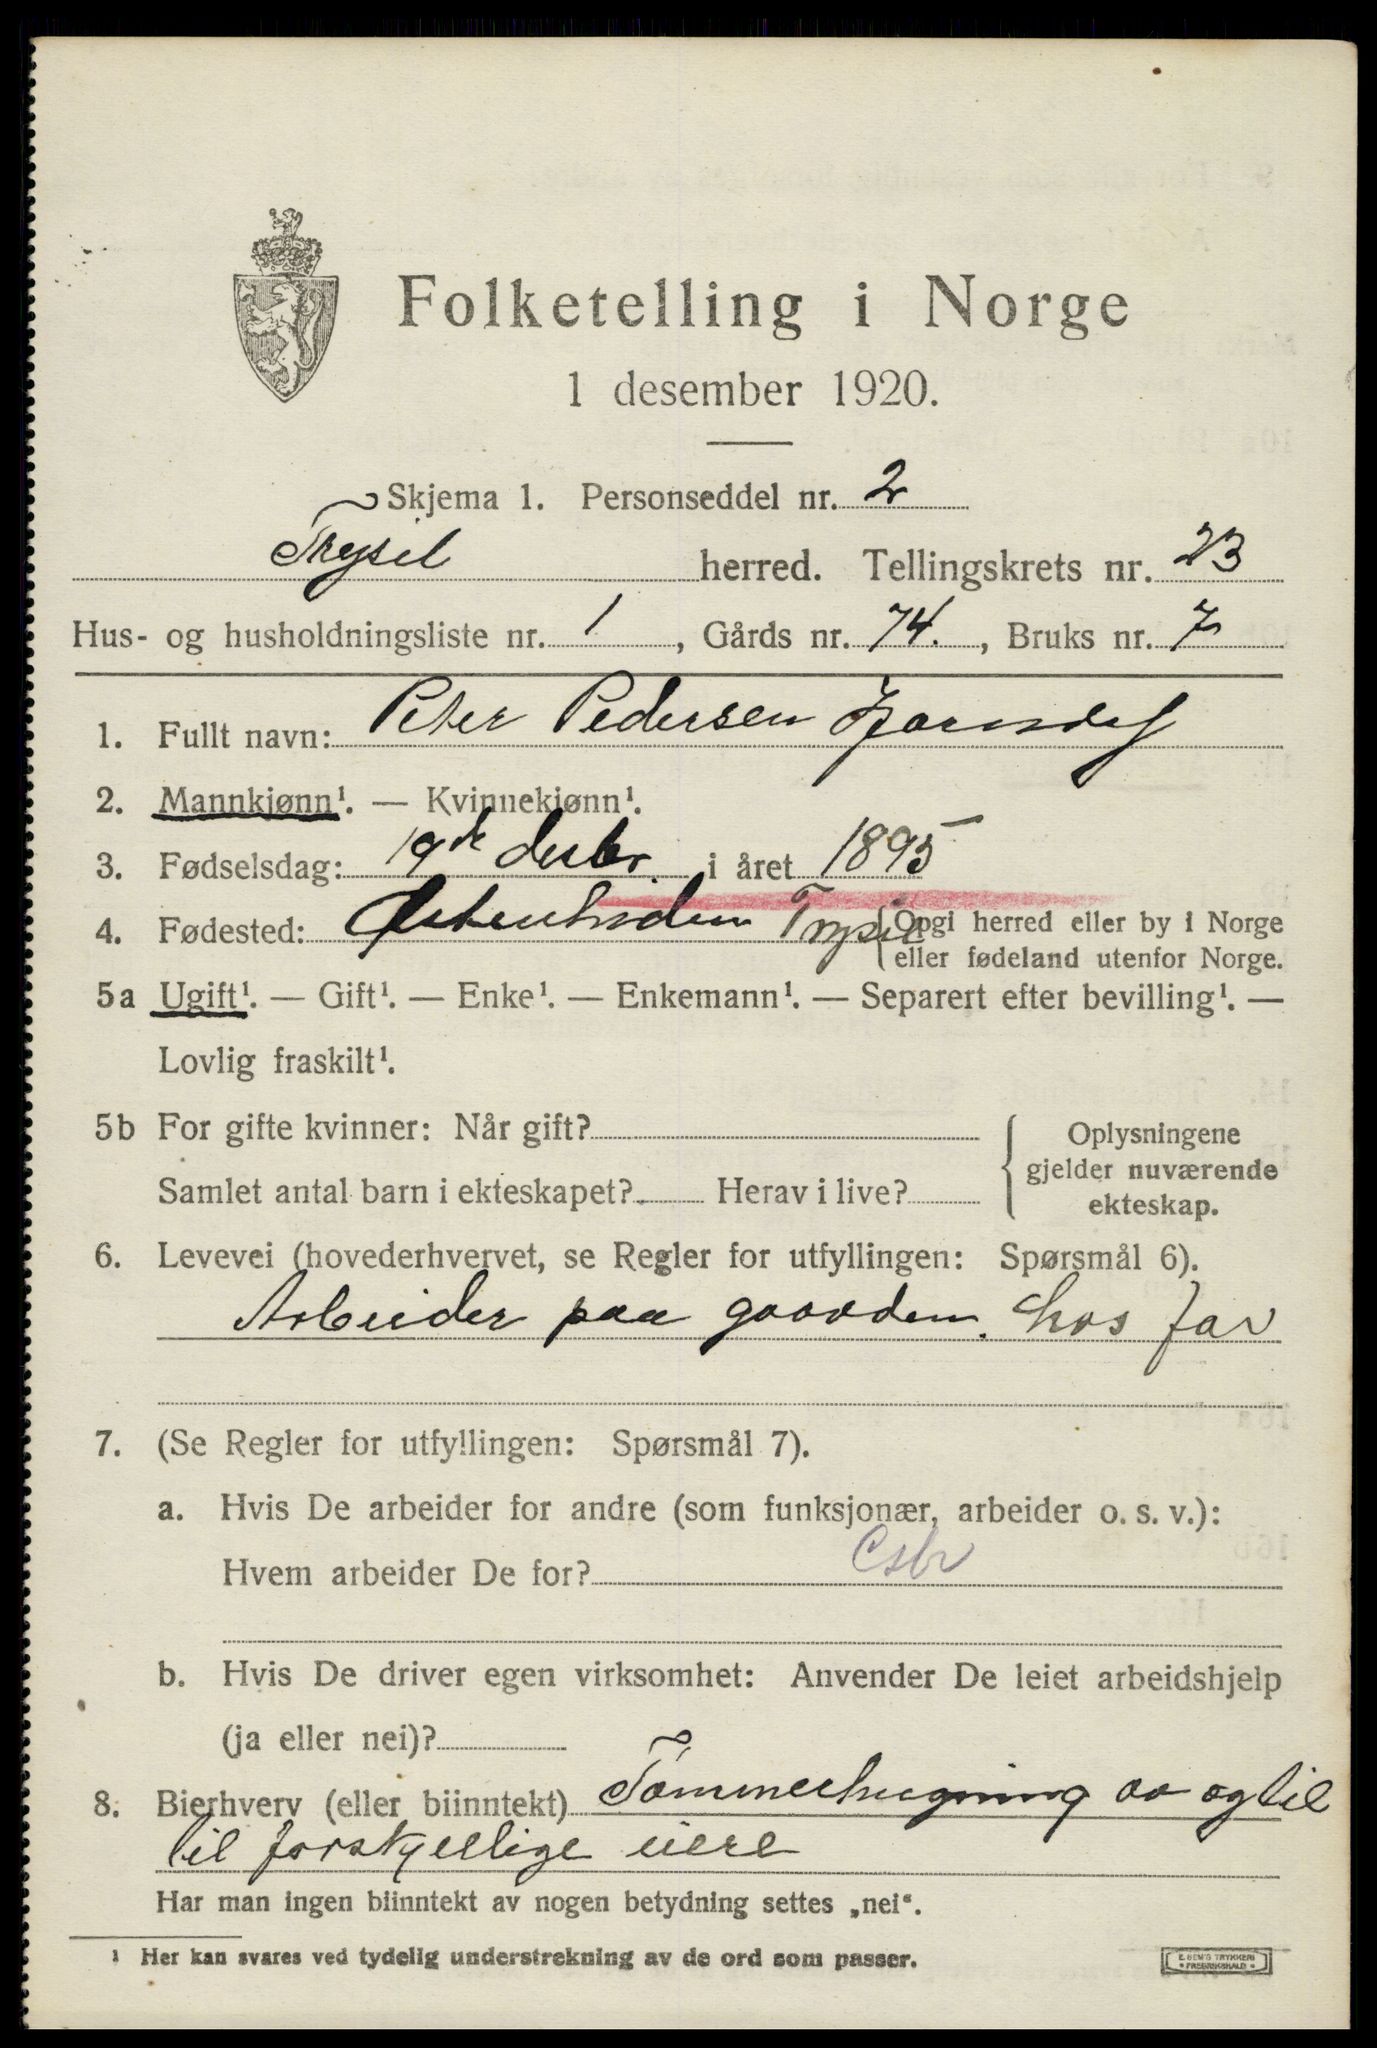 Folketelling i Norge
1 desember 1920.
Skjema 1. Personseddel nr. 2
Trysil herred. Tellingskrets nr. 23
Hus- og husholdningsliste nr. 1, Gårds nr. 74., Bruks nr. 7
1. Fullt navn: Peter Pedersen
2. Mannkjønn¹. — Kvinnekjønn¹.
3. Fødselsdag: 19de desbr. i året 1895
4. Fødested: Trysil {Opgi herred eller by i Norge
eller fødeland utenfor Norge.
5a Ugift¹. — Gift¹. — Enke¹. — Enkemann¹. — Separert efter bevilling¹. —
Lovlig fraskilt¹.
5b For gifte kvinner: Når gift?
Samlet antal barn i ekteskapet? Herav i live?
Oplysningene
gjelder nuværende
ekteskap.
6. Levevei (hovederhvervet, se Regler for utfyllingen: Spørsmål 6).
Arbeider paa gaarden. hos far
7. (Se Regler for utfyllingen: Spørsmål 7).
a. Hvis De arbeider for andre (som funksjonær, arbeider o. s. v.):
Hvem arbeider De for?
b. Hvis De driver egen virksomhet: Anvender De leiet arbeidshjelp
(ja eller nei)?
8. Bierhverv (eller biinntekt) Tømmerhugning av og til
til forskjellige eiere
Har man ingen biinntekt av nogen betydning settes „nei“.
¹ Her kan svares ved tydelig understrekning av de ord som passer.
E. SEM'S TRYKKERI
• FREDRIKSHALD •